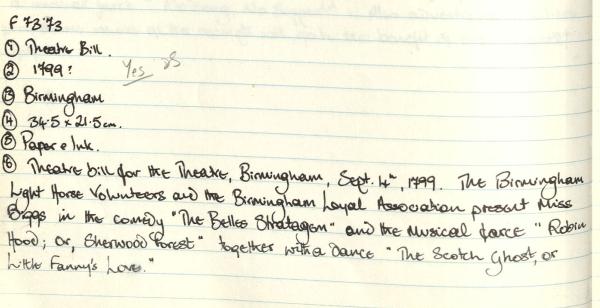 F 73'73
① Theatre Bill.
② 1799? Yes
③ Birmingham
④ 34.5 x 21.5 cm.
⑤ Paper e Ink.
⑥ Theatre bill for the Theatre, Birmingham, Sept. 4th, 1799. The Birmingham
Light Horse Volunteers and the Birmingham Loyal Association present Miss
Biggs in the comedy "The Belles Stratagem" and the Musical farce "Robin
Hood; or, Sherwood Forest" together with a Dance "The Scotch Ghost, or
Little Fanny's Love."